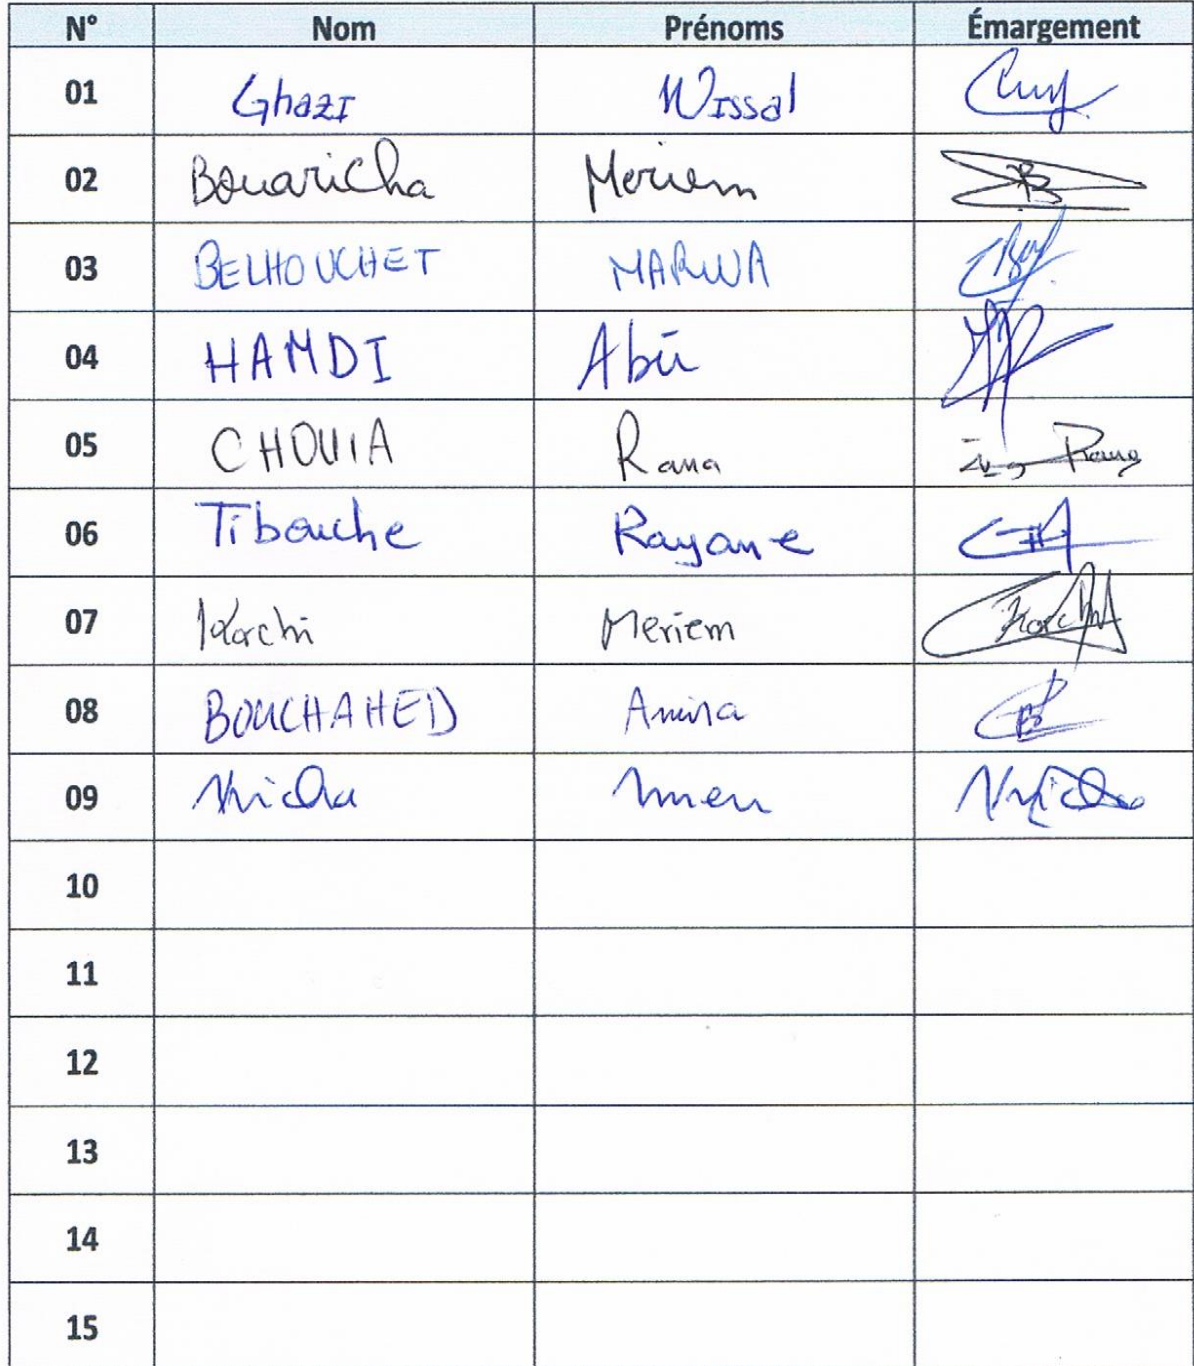 N° Nom Prénoms Émargement
01 Ghazi Wissal
02 Bouaricha Meriem
03 BELHOUCHET MARWA
04 HAMDI Abir
05 CHOUIA Rana Rana
06 Tibouche Rayane
07 Karchi Meriem
08 BOUCHAHED Amira
09 Imen
10
11
12
13
14
15